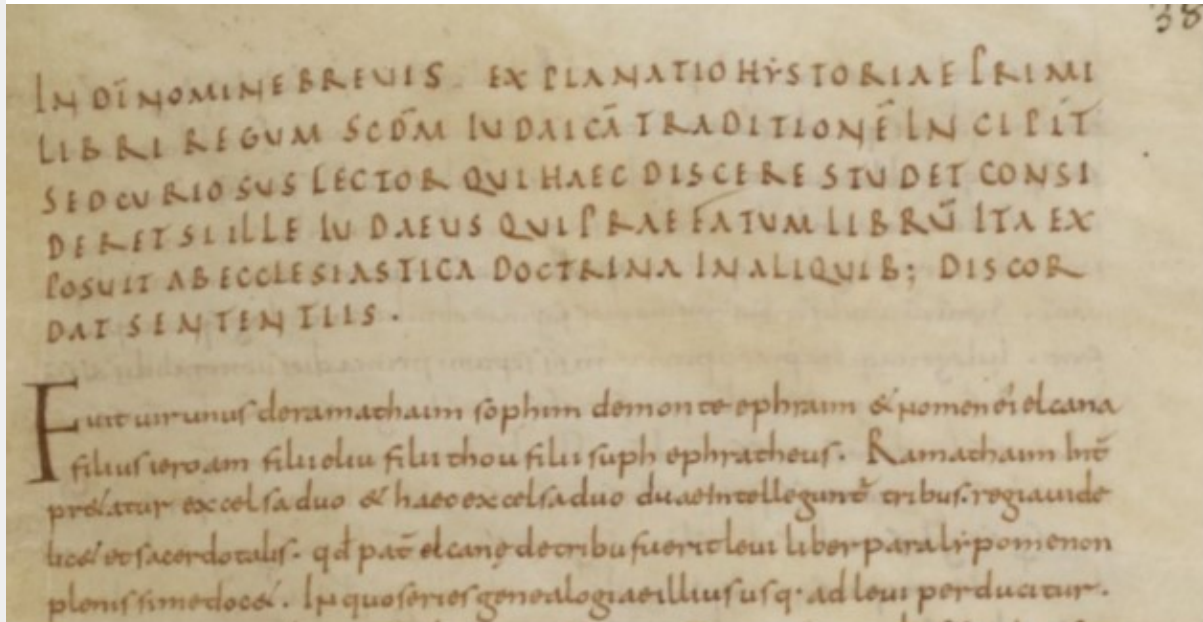 38
IN DI̅ NOMINE BREUIS EXPLANATIO HẎSTORIAE PRIMI
LIBRI REGUM SCD̅M IUDAICA̅ TRADITIONE̅ INCIPIT̅
SED CURIOSUS LECTOR QUI HAEC DISCERE STUDET CONSI
DERET SI ILLE IUDAEUS QUI PRAEFATUM LIBRU̅ ITA EX
POSUIT AB ECCLESIASTICA DOCTRINA IN ALIQUIB; DISCOR
DAT SENTENTIIS.
Fuit uir unus de ramathaim sophim de monte ephraim & nomen ei elcana
filius ieroam filii eliu filii thou filii suph ephratheus. Ramathaim int̅
pr&atur excelsa duo & haec excelsa duo duae intellegunt̅ tribus. regia uide
lic& et sacerdotalis. qd̅ pat̅ elcanę de tribu fuerit leui liber paralẏpomenon
plenissime doc&. In quo series genealogiae illius usq· ad leui perducitur.